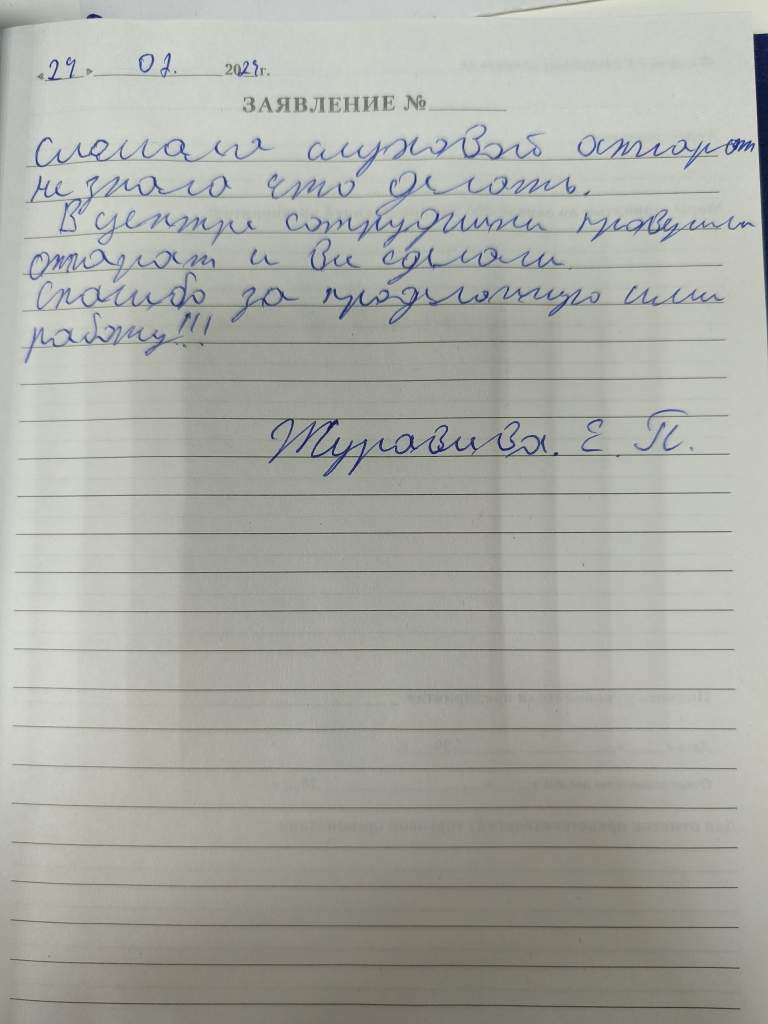 «24» 07. 2024г.
ЗАЯВЛЕНИЕ №
Сломала слуховой аппарат
не знала что делать.
В центре сотрудники проверили
аппарат и все сделали.
Спасибо за проделанную ими
работу!!!
Журавлева. Е. П.